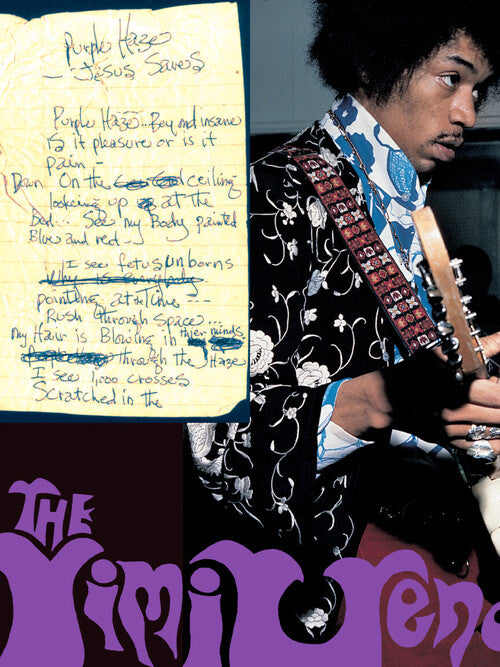 Purple Haze
- Jesus Saves
Purple Haze... Beyond insane
Is it pleasure or is it
pain -
Down On the ceiling
looking up at the
Bed... See my Body painted
Blue and red -
I see fetus Unborns
Why is everybody
pointing at in time - -
Rush through space...
my Hair is Blowing in thier minds
through the Haze
I see 1,000 crosses
Scratched in the
THE
Jimi Hend